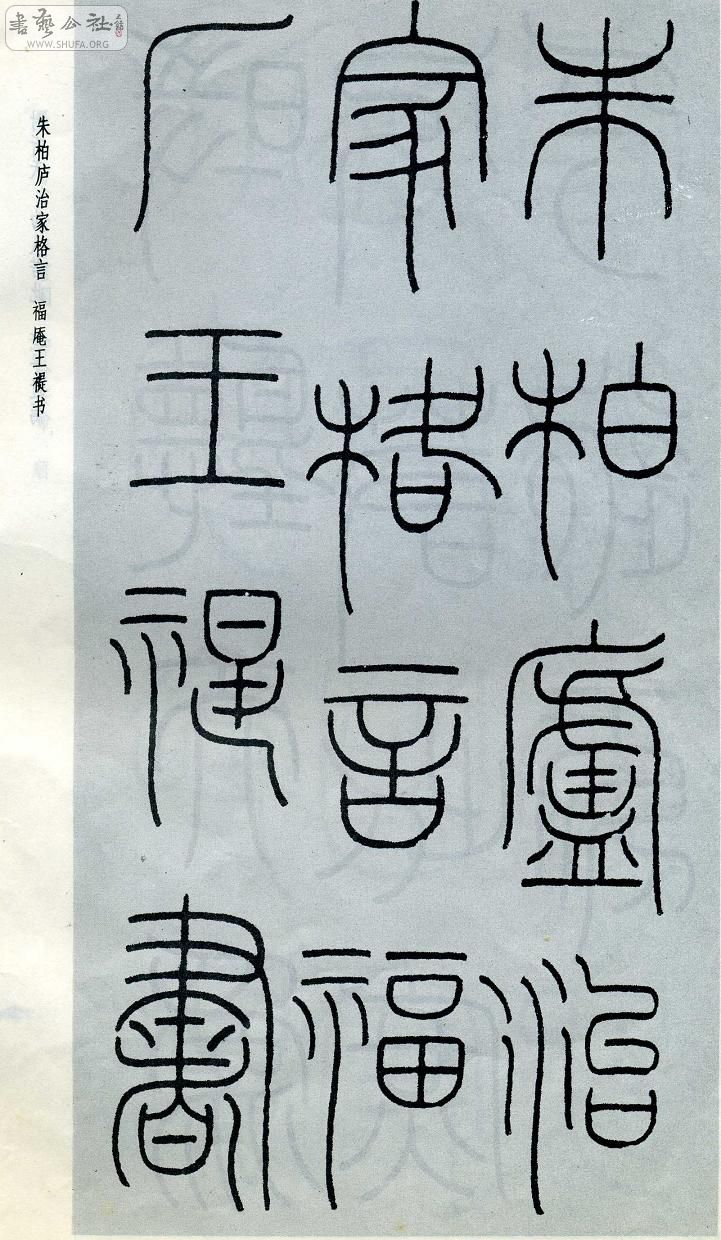 書藝公社
WWW.SHUFA.ORG
朱柏盧治
家格言福
厂王禔書
朱柏庐治家格言 福庵王禔书